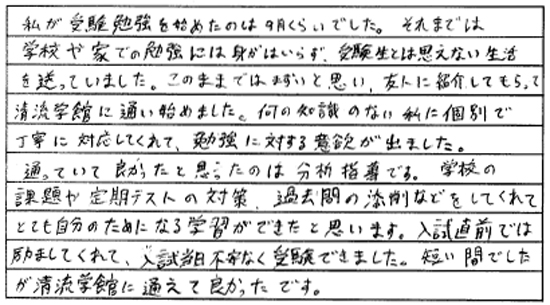 私が受験勉強を始めたのは9月くらいでした。それまでは
学校や家での勉強には身がはいらず、受験生とは思えない生活
を送っていました。このままではまずいと思い、友人に紹介してもらって
清流学館に通い始めました。何の知識のない私に個別で
丁寧に対応してくれて、勉強に対する意欲が出ました。
通っていて良かったと思ったのは分析指導である。学校の
課題や定期テストの対策、過去問の添削などをしてくれて
とても自分のためになる学習ができたと思います。入試直前では
励ましてくれて、入試当日不安なく受験できました。短い間でした
が清流学館に通えて良かったです。